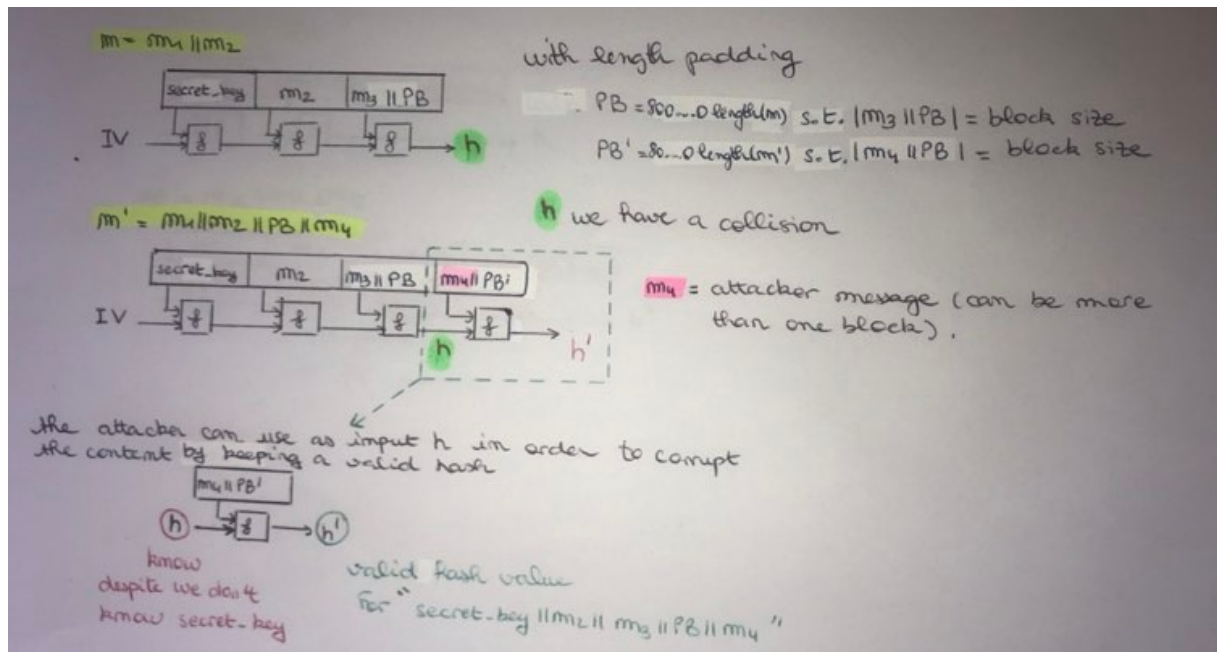 m = m1 || m2
with length padding
secret_key m2 m3 || PB
PB = 800...0 length(m) s.t. |m3 || PB| = block size
IV f f f h
PB' = 80...0 length(m') s.t. |m4 || PB| = block size
m' = m1 || m2 || PB || m4
h we have a collision
secret_key m2 m3 || PB m4 || PB'
m4 = attacker message (can be more
than one block).
IV f f f f
h h'
the attacker can use as input h in order to corrupt
the content by keeping a valid hash
m4 || PB'
h f h'
know
despite we don't
know secret-key
valid hash value
For "secret-key || m2 || m3 || PB || m4"